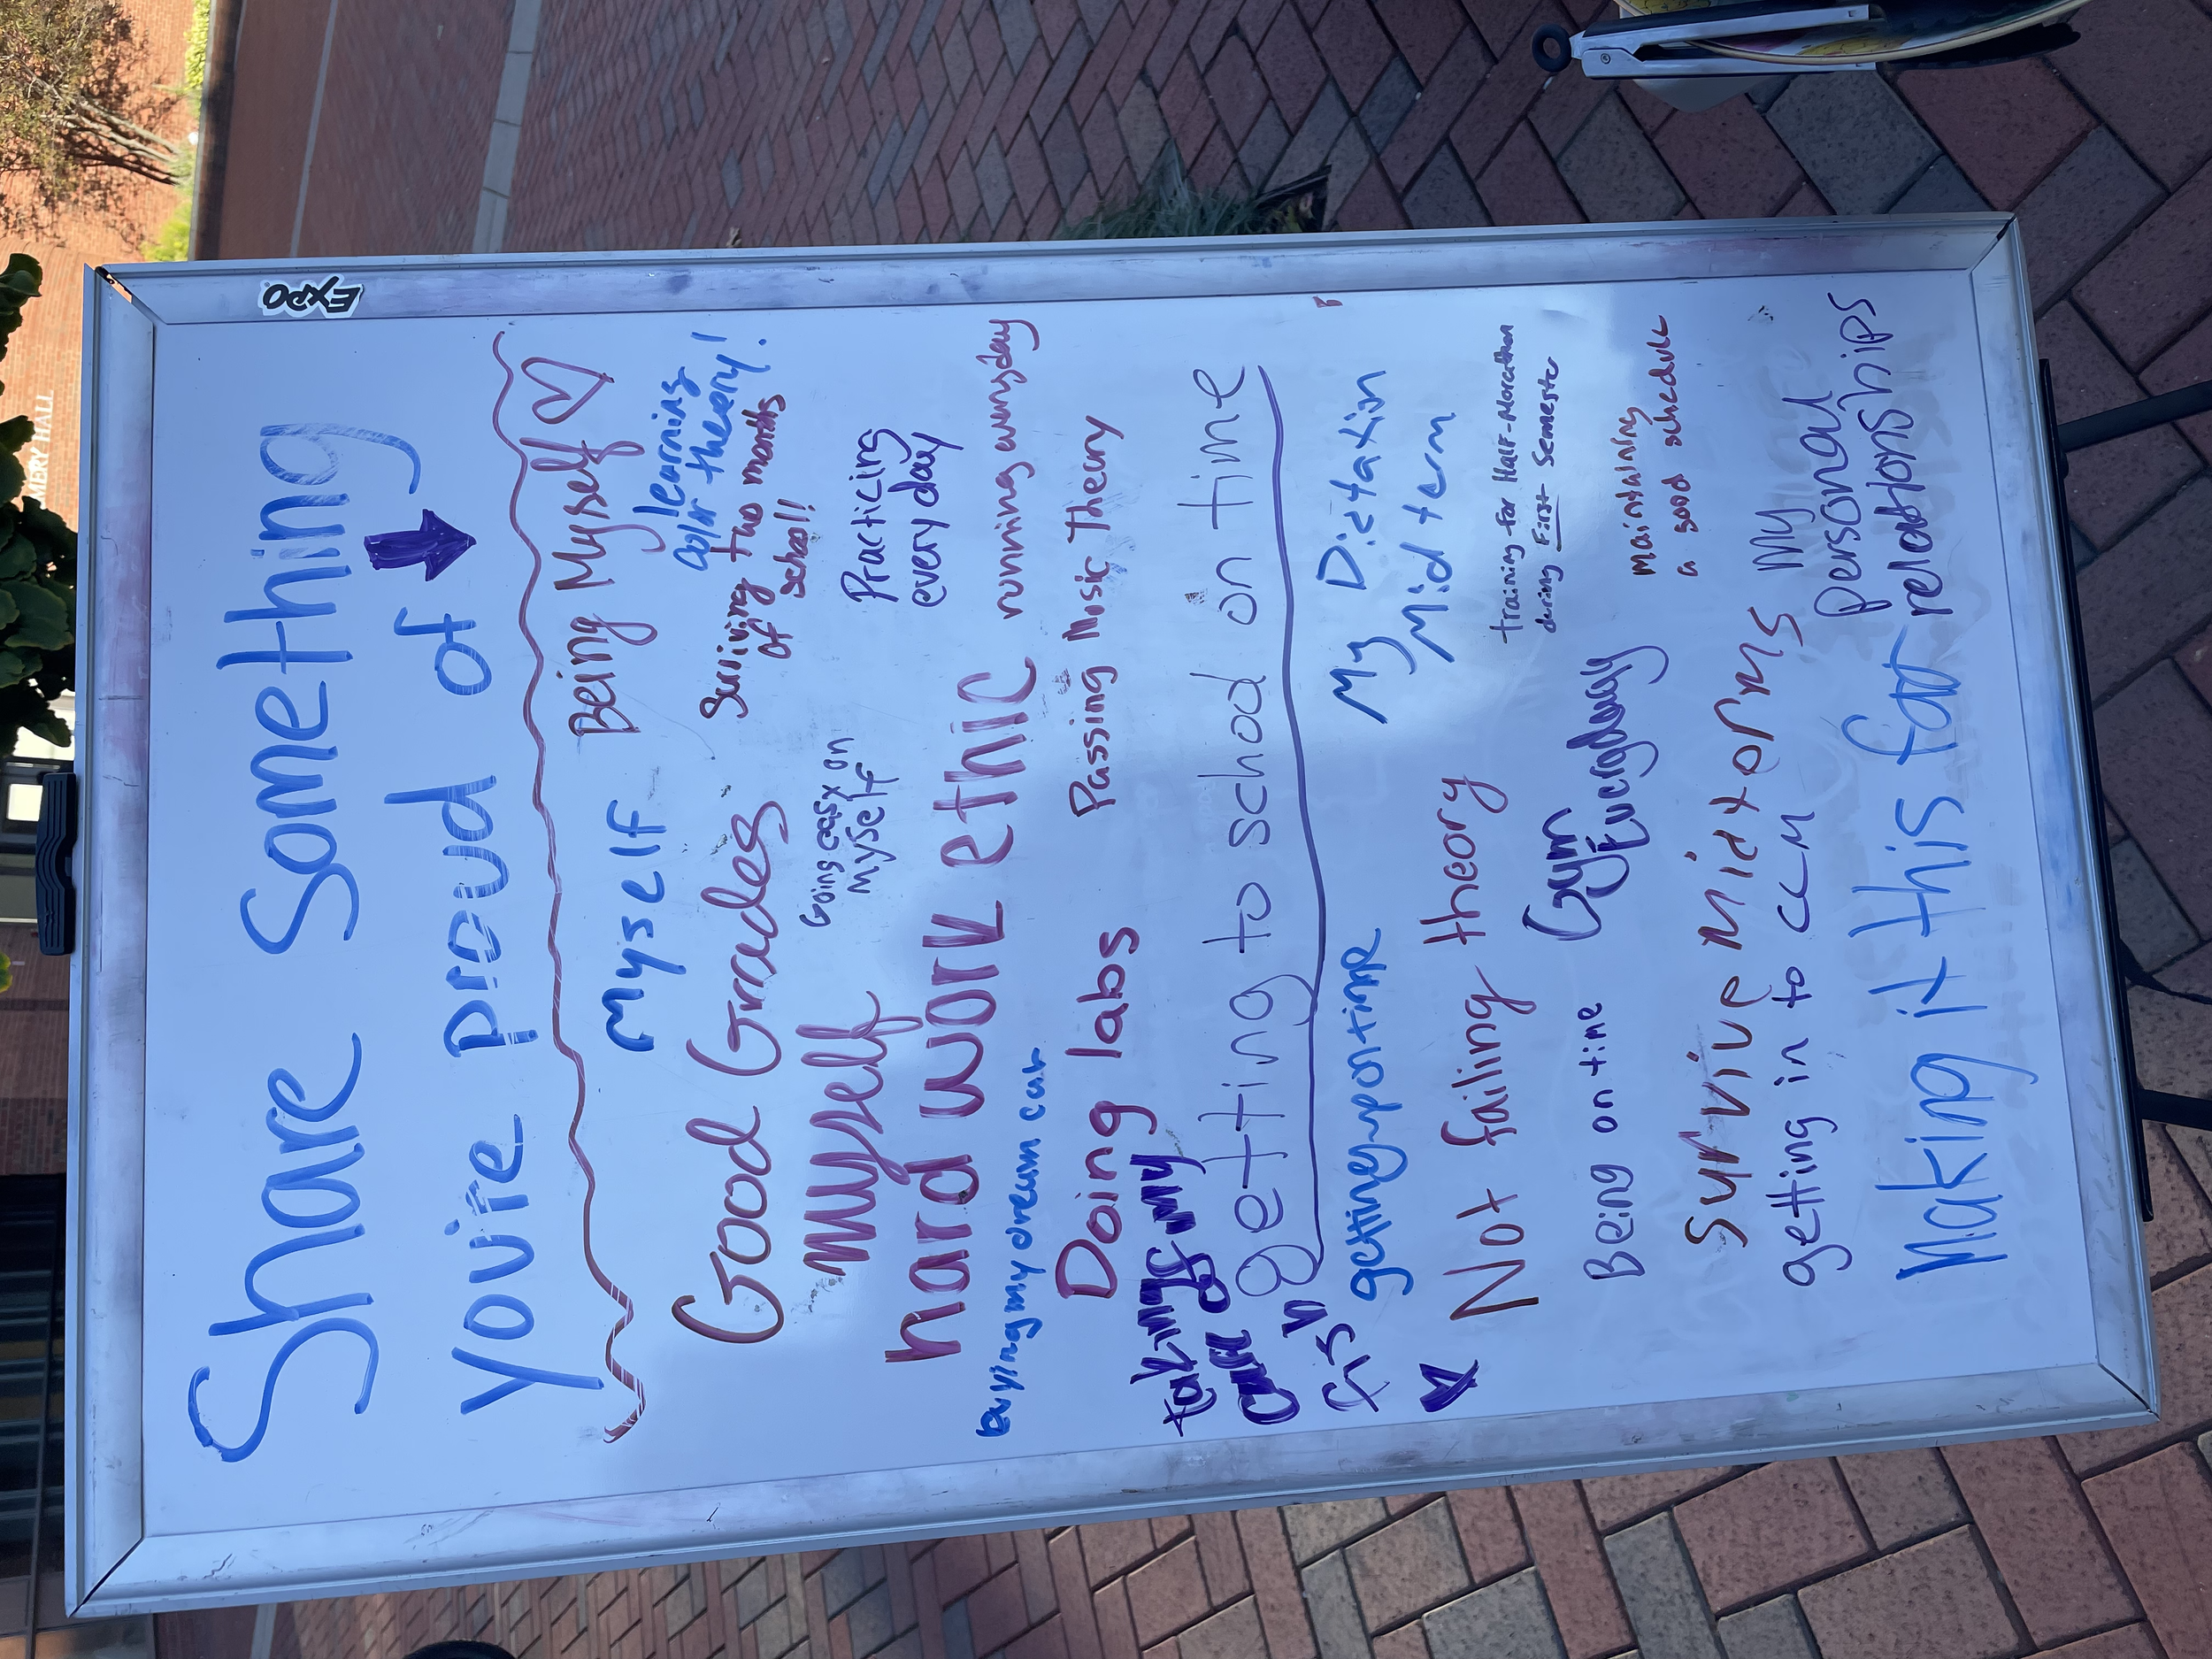 EXPO
Share Something
you're proud of
Myself
Being Myself
learning
color theory!
Good Grades
Surviving two months
of school!
Going easy on
myself
Practicing
every day
myself
hard work ethic
running everyday
buying my dream car
Doing labs
Passing Music Theory
taking my
care of
fish
getting to school on time
getting up on time
My Dictation
Midterm
Not failing theory
Training for Half-Marathon
during First Semester
Gym
Everyday
Being on time
maintaining
a good schedule
Survive Midtorms
getting in to CCM
My
personal
relationships
Making it this far
EMERY HALL